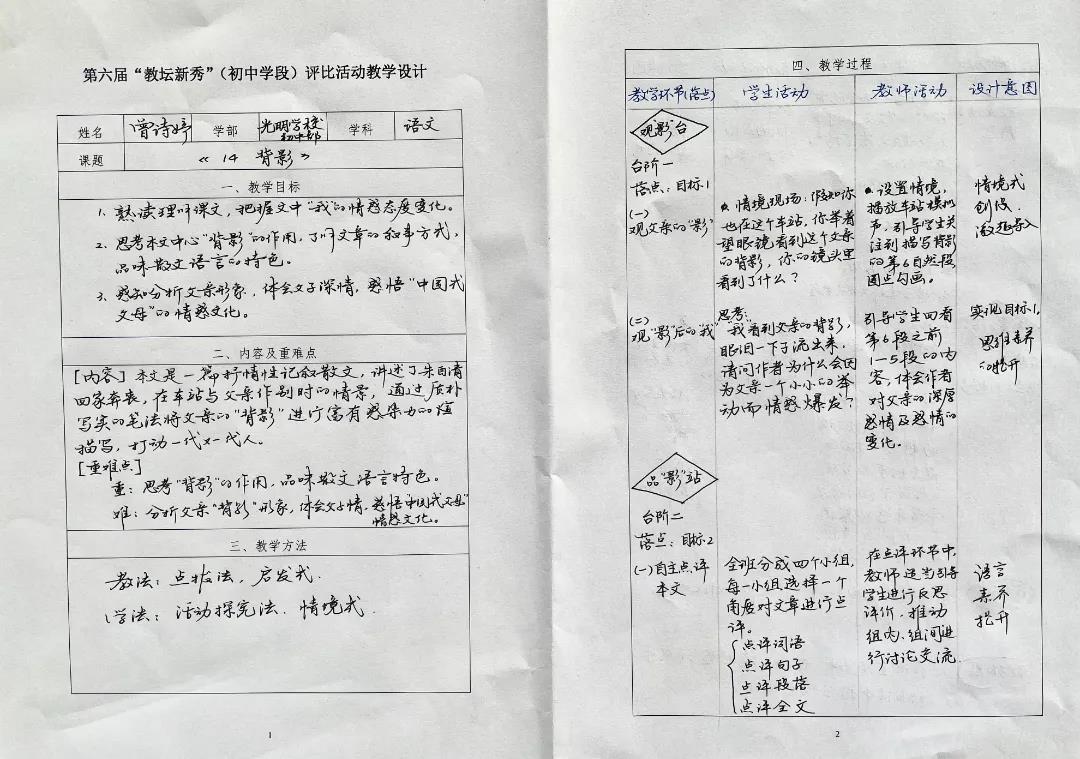 第六届“教坛新秀”（初中学段）评比活动教学设计
姓名 曾诗婷 学部 光明学校初中部 学科 语文
课题 《14 背影》
一、教学目标
1. 熟读理解课文，把握文中“我”的情感态度变化。
2. 思考本文中心“背影”的作用，了解文章的叙事方式，
品味散文语言的特色。
3. 感知分析父亲形象，体会父子深情，感悟“中国式
父母”的情感文化。
二、内容及重难点
[内容] 本文是一篇抒情性记叙散文，讲述了朱自清
回家奔丧，在车站与父亲作别时的情景，通过质朴
写实的笔法将父亲的“背影”进行富有感染力的
描写，打动一代又一代人。
[重难点]
重：思考“背影”的作用，品味散文语言特色。
难：分析父亲“背影”形象，体会父子情，感悟“中国式父母”
情感文化。
三、教学方法
教法：点拨法，启发式.
学法：活动探究法、情境式.
1
四、教学过程
教学环节(落点) 学生活动 教师活动 设计意图
观“影”台
台阶一
落点：目标1
(一)
观父亲的“影”
情境现场：假如你
也在这个车站，你举着
望眼镜看到这个父亲
的背影，你的镜头里
看到了什么？
设置情境，
播放车站模拟
声，引导学生关
注到描写背影
的第6自然段
圈点勾画。
情境式
创设，
激趣导入
(二)
观“影”后的“我”
思考：
“我看到父亲的背影，
眼泪一下子流出来，
请问作者为什么会因
为父亲一个小小的举
动而情感爆发？
引导学生回看
第6段之前
1-5段的内
容，体会作者
对父亲的深层
感情及感情的
变化。
实现目标1，
思维素养
的提升
品“影”站
台阶二
落点：目标2
(一)自主点评
本文
全班分成四个小组，
每一小组选择一个
角度对文章进行点
评。
点评词语
点评句子
点评段落
点评全文
在点评环节中，
教师适当引导
学生进行反思
评价，推动
组内、组间进
行讨论交流.
语言
素养
提升
2